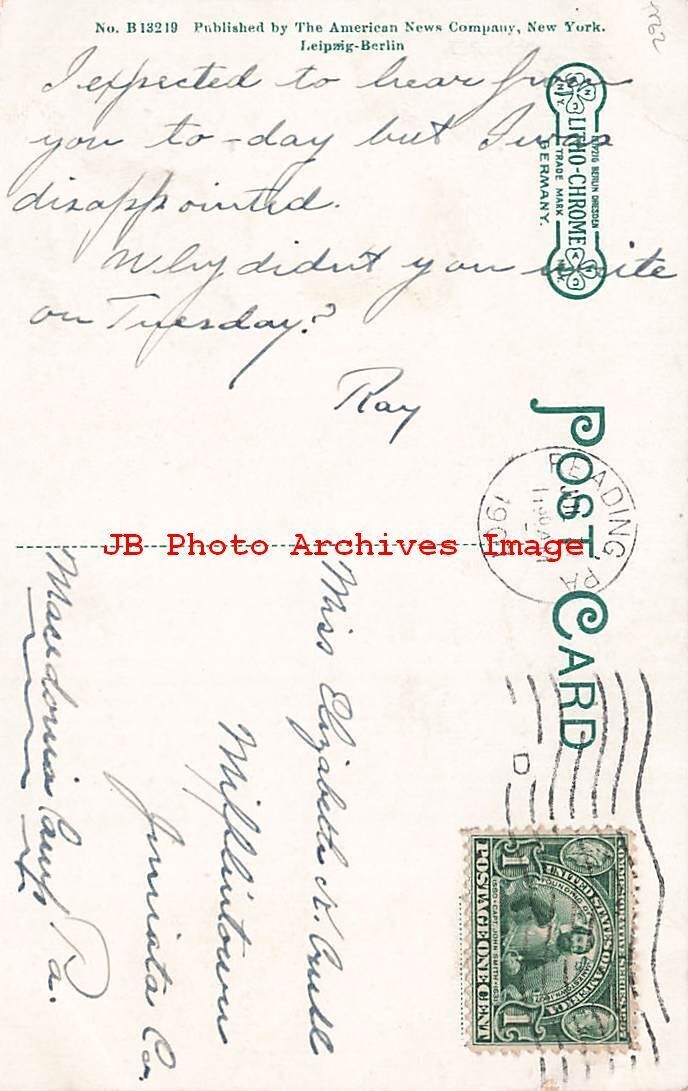 No. B 13219 Published by The American News Company, New York.
Leipzig-Berlin
I expected to hear from
you to-day but I was
disappointed.
Why didn't you write
on Tuesday?
Ray
LEIPZIG BERLIN DRESDEN
LITHO-CHROME
TRADE MARK
GERMANY.
POST CARD
READING, PA
11:30 AM
190
D
JB Photo Archives Image
Miss Elizabeth K.
Mifflintown
Juniata Co.
Macedonia Camp Pa.
UNITED STATES OF AMERICA
FOUNDING OF JAMESTOWN 1607
1580-CAPT. JOHN SMITH-1631
1 POSTAGE ONE CENT 1